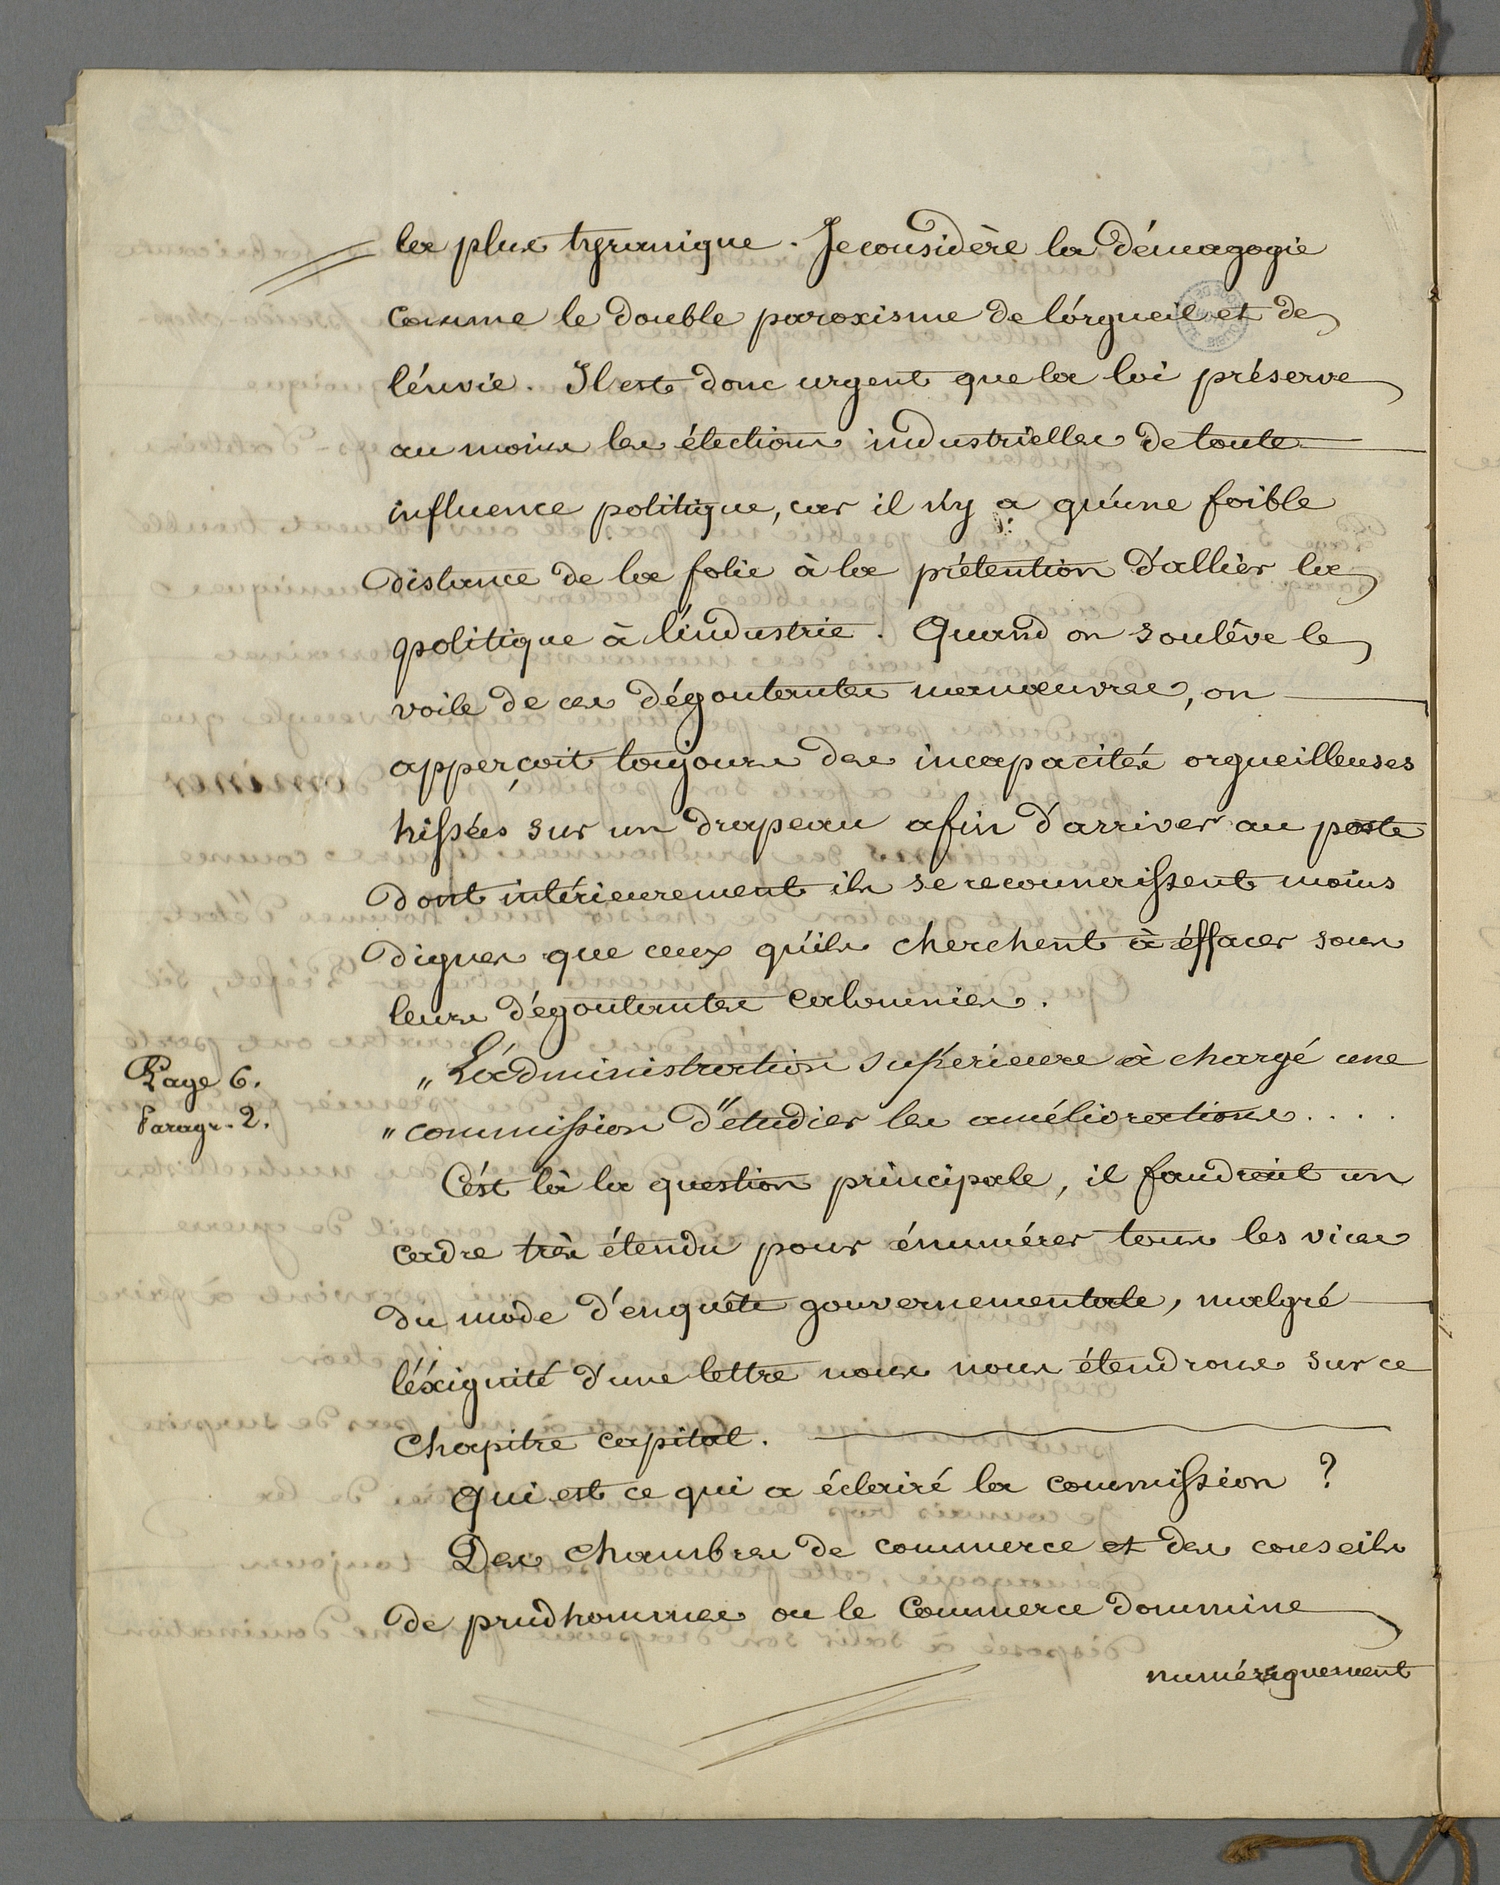 la plus tyranique. Je considère la démagogie
comme le double paroxisme de l'órgueil et de
l'énvie. Il est donc urgent que la loi préserve
au moins les élections industrielles de toute
influence politique, car il n'y a qu'une foible
distance de la folie à la prétention d'allièr la
politique à l'industrie. Quand on soulêve le
voile de ces dégoutantes manœuvres, on
apperçoit toujours des incapacités orgueilleuses
hissées sur un drapeau afin d'arriver au poste
dont intérieurement ils se reconnaissent moins
dignes que ceux qu'ils cherchent à éffacer sous
leurs dégoutantes calomnies.
Page 6.
Paragr. 2.
„ L'administration supérieure à chargé une
„ commission d'étudier les améliorations . . . .
C'ést là la question principale, il faudrait un
cadre très étendu pour énumérer tous les vices
du mode d'enquête gouvernementale, malgré
l'éxiguité d'une lettre nous nous étendrons sur ce
chapitre capital.
Qui est ce qui a éclairé la commission ?
Des chambres de commerce et des conseils
de prudhommes ou le Commerce dommine
numériquement